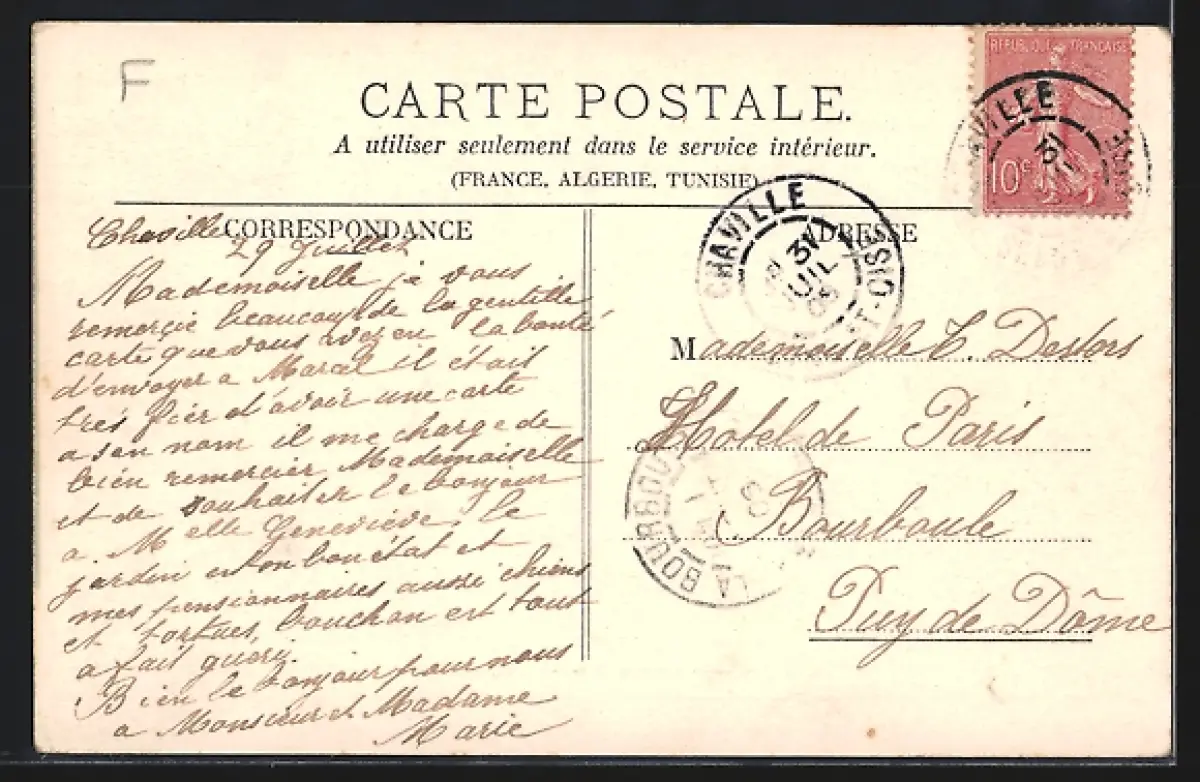 F
CARTE POSTALE.
A utiliser seulement dans le service intérieur.
(FRANCE, ALGERIE, TUNISIE)
REPUBLIQUE FRANÇAISE
10c
CHAVILLE
31
CORRESPONDANCE
Chaville
29 Juillet
Mademoiselle je vous
remercie beaucoup de la gentille
carte que vous avez eu la bonté
d'envoyer a Marcel il était
très fier d'avoir une carte
a son nom il me charge de
bien remercier Mademoiselle
et de souhaiter le bonjour
a Melle Geneviève, le
jardin est en bon état et
mes pensionnaires aussi chiens
et tortues, bouchon est tout
a fait guéri.
Bien le bonjour pour nous
a Monsieur et Madame
Marie
ADRESSE
CHAVILLE
31
JUIL
Mademoiselle T. Deslors
Hotel de Paris
Bourboule
Puy de Dôme
LA BOURBOU